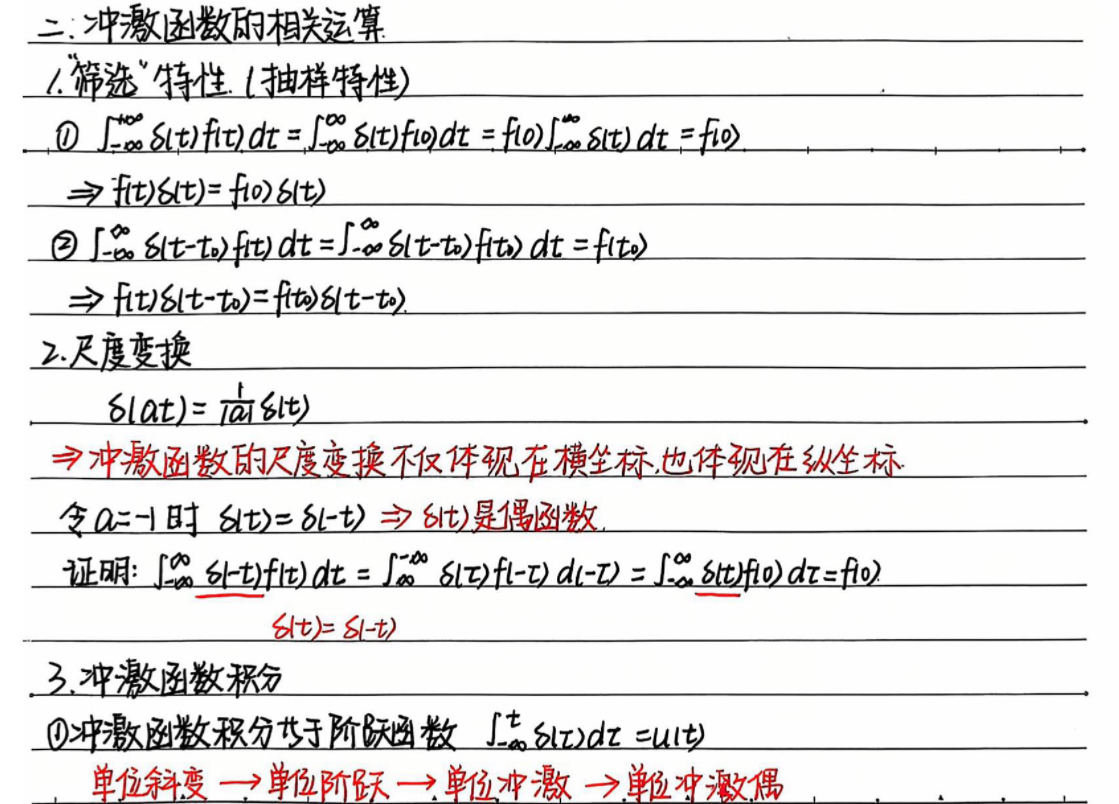 二.冲激函数的相关运算
1.“筛选”特性.(抽样特性)
① ∫_{-∞}^{+∞} δ(t)f(t)dt = ∫_{-∞}^{∞} δ(t)f(0)dt = f(0)∫_{-∞}^{∞} δ(t)dt = f(0)
⇒ f(t)δ(t)=f(0)δ(t)
② ∫_{-∞}^{∞} δ(t-t₀)f(t)dt = ∫_{-∞}^{∞} δ(t-t₀)f(t₀)dt = f(t₀)
⇒ f(t)δ(t-t₀)=f(t₀)δ(t-t₀).
2.尺度变换
δ(at)= \frac{1}{|a|} δ(t)
⇒冲激函数的尺度变换不仅体现在横坐标,也体现在纵坐标.
令a=-1时 δ(t)=δ(-t) ⇒ δ(t)是偶函数.
证明: ∫_{-∞}^{∞} δ(-t)f(t)dt = ∫_{∞}^{-∞} δ(τ)f(-τ)d(-τ) = ∫_{-∞}^{∞} δ(t)f(0)dτ=f(0).
δ(t)=δ(-t)
3.冲激函数积分
①冲激函数积分等于阶跃函数 ∫_{-∞}^{t} δ(τ)dτ=u(t)
单位斜变→单位阶跃→单位冲激→单位冲激偶